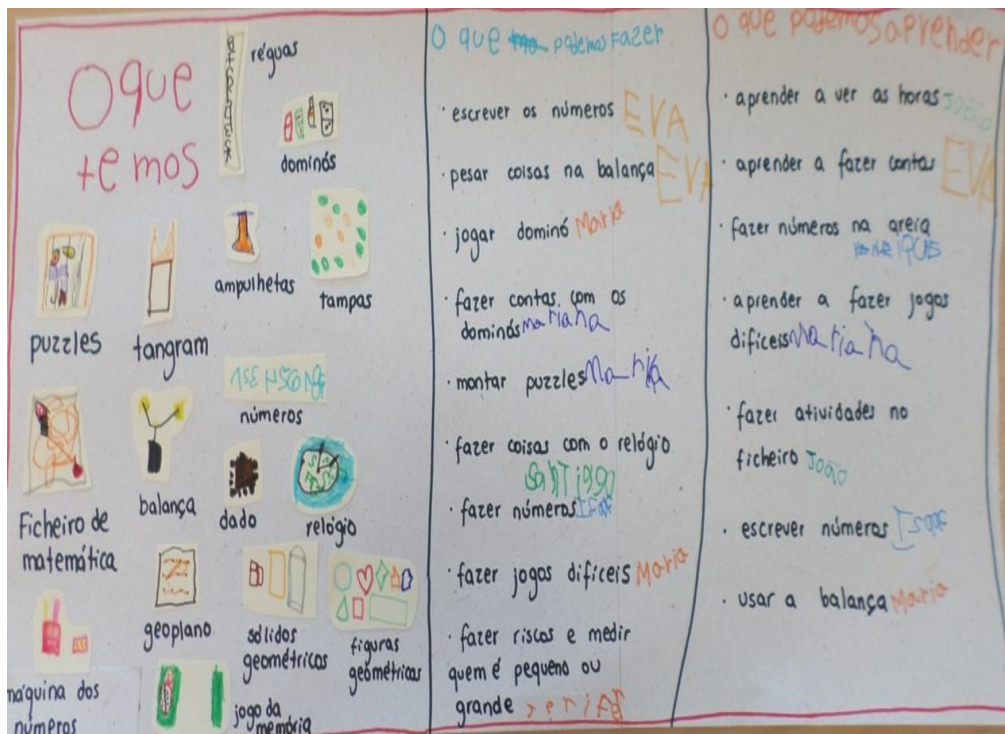 O que
temos
réguas
dominós
puzzles
tangram
ampulhetas
tampas
números
Ficheiro de
matemática
balança
dado
relógio
geoplano
sólidos
geométricos
figuras
geométricas
máquina dos
números
jogo da
memória
O que podemos Fazer
· escrever os números EVA
· pesar coisas na balança EVA
· jogar dominó Maria
· fazer contas com os
dominós Mariana
· montar puzzles Maria
· fazer coisas com o relógio
Santiago
· fazer números Isac
· fazer jogos difíceis Maria
· fazer riscos e medir
quem é pequeno ou
grande
O que podemos aprender
· aprender a ver as horas João
· aprender a fazer contas EVA
· fazer números na areia
· aprender a fazer jogos
difíceis Mariana
· fazer atividades no
ficheiro João
· escrever números Isac
· usar a balança Maria